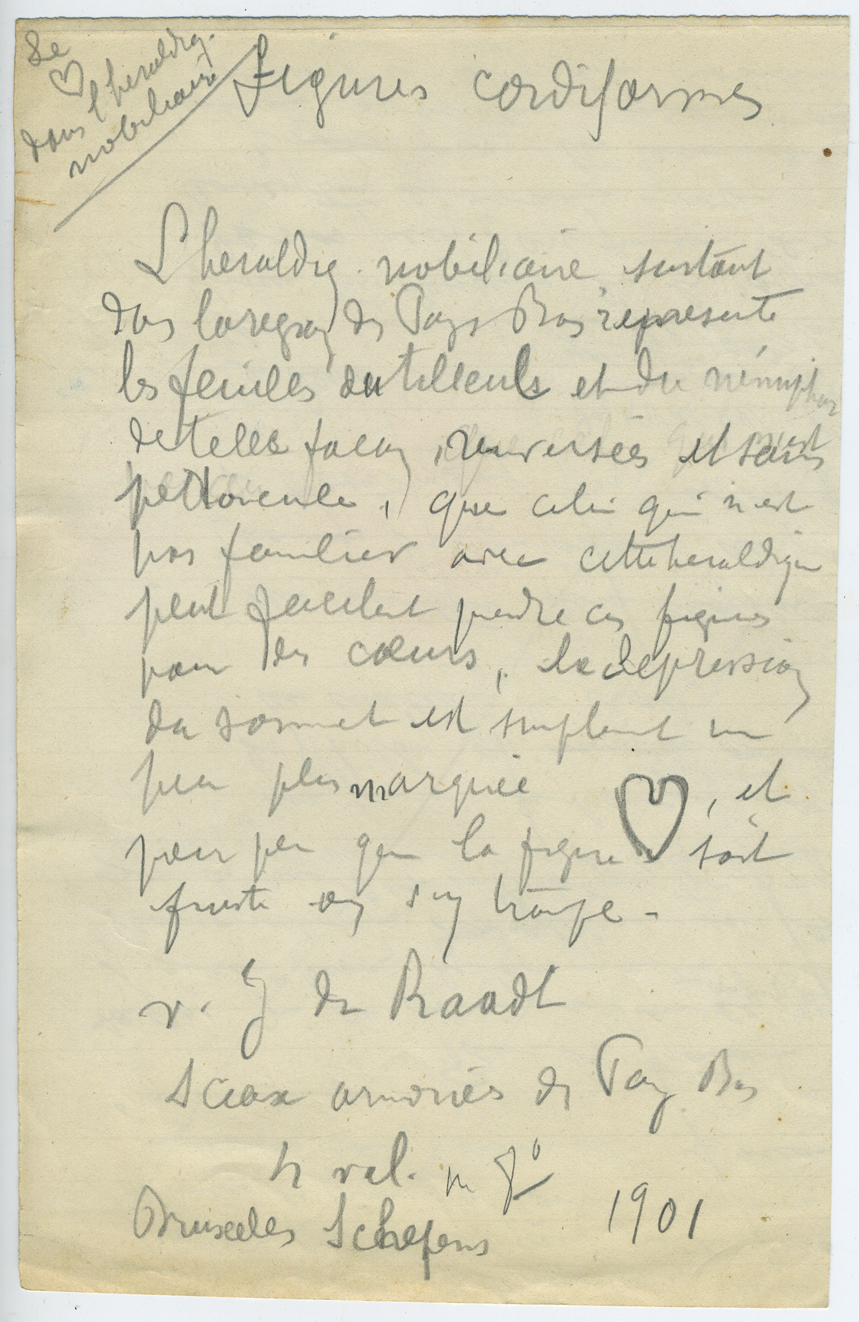 Le
♡
dans l'heraldiq.
nobiliaire
Figures cordiformes
L'heraldiq. nobiliaire surtout
dans la region des Pays Bas represente
les feuilles du tilleuls et du nénuphar
de telle facon, renversées et sans
, que celui qui n'est
pas familier avec cette heraldique
peut facilent prendre ces figures
pour des cœurs, la depression
du sommet est simplent un
peu plus marquée ♡, et
pour peu que la figure soit
fruste on s'y trompe.
v. J de Raadt
Sceaux armoriés des Pays Bas
4 vol. in 8°
Bruxelles Schepens 1901